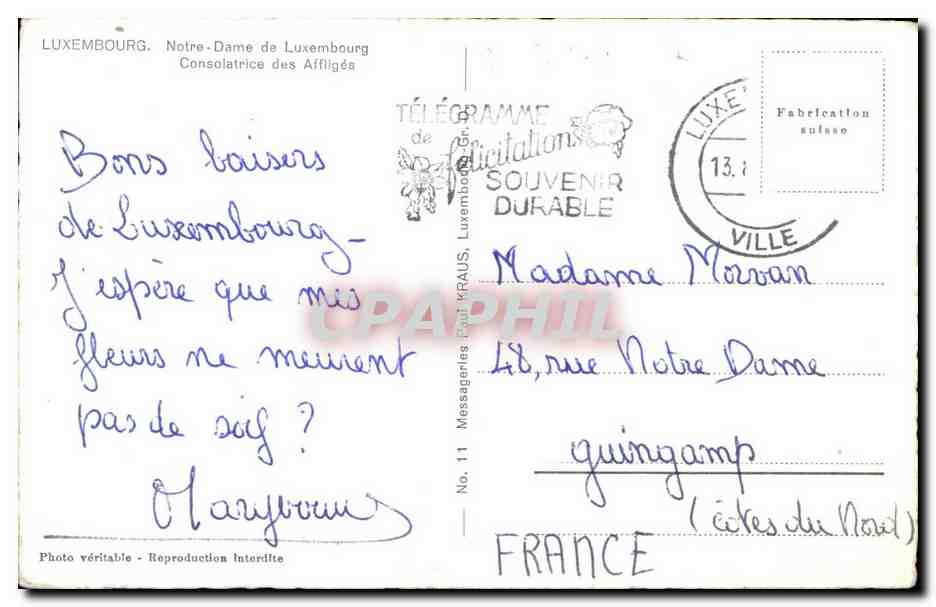 LUXEMBOURG. Notre-Dame de Luxembourg
Consolatrice des Affligés
Bons baisers
de Luxembourg -
J'espère que mes
fleurs ne meurent
pas de soif ?
Photo véritable - Reproduction interdite
No. 11 Messageries Paul KRAUS, Luxembourg-Gr.-D.
TÉLÉGRAMME
de
félicitations
SOUVENIR
DURABLE
LUXE
13.
VILLE
Fabrication
suisse
Madame Morvan
48, rue Notre Dame
Guingamp
(Côtes du Nord)
FRANCE
CPAPHIL